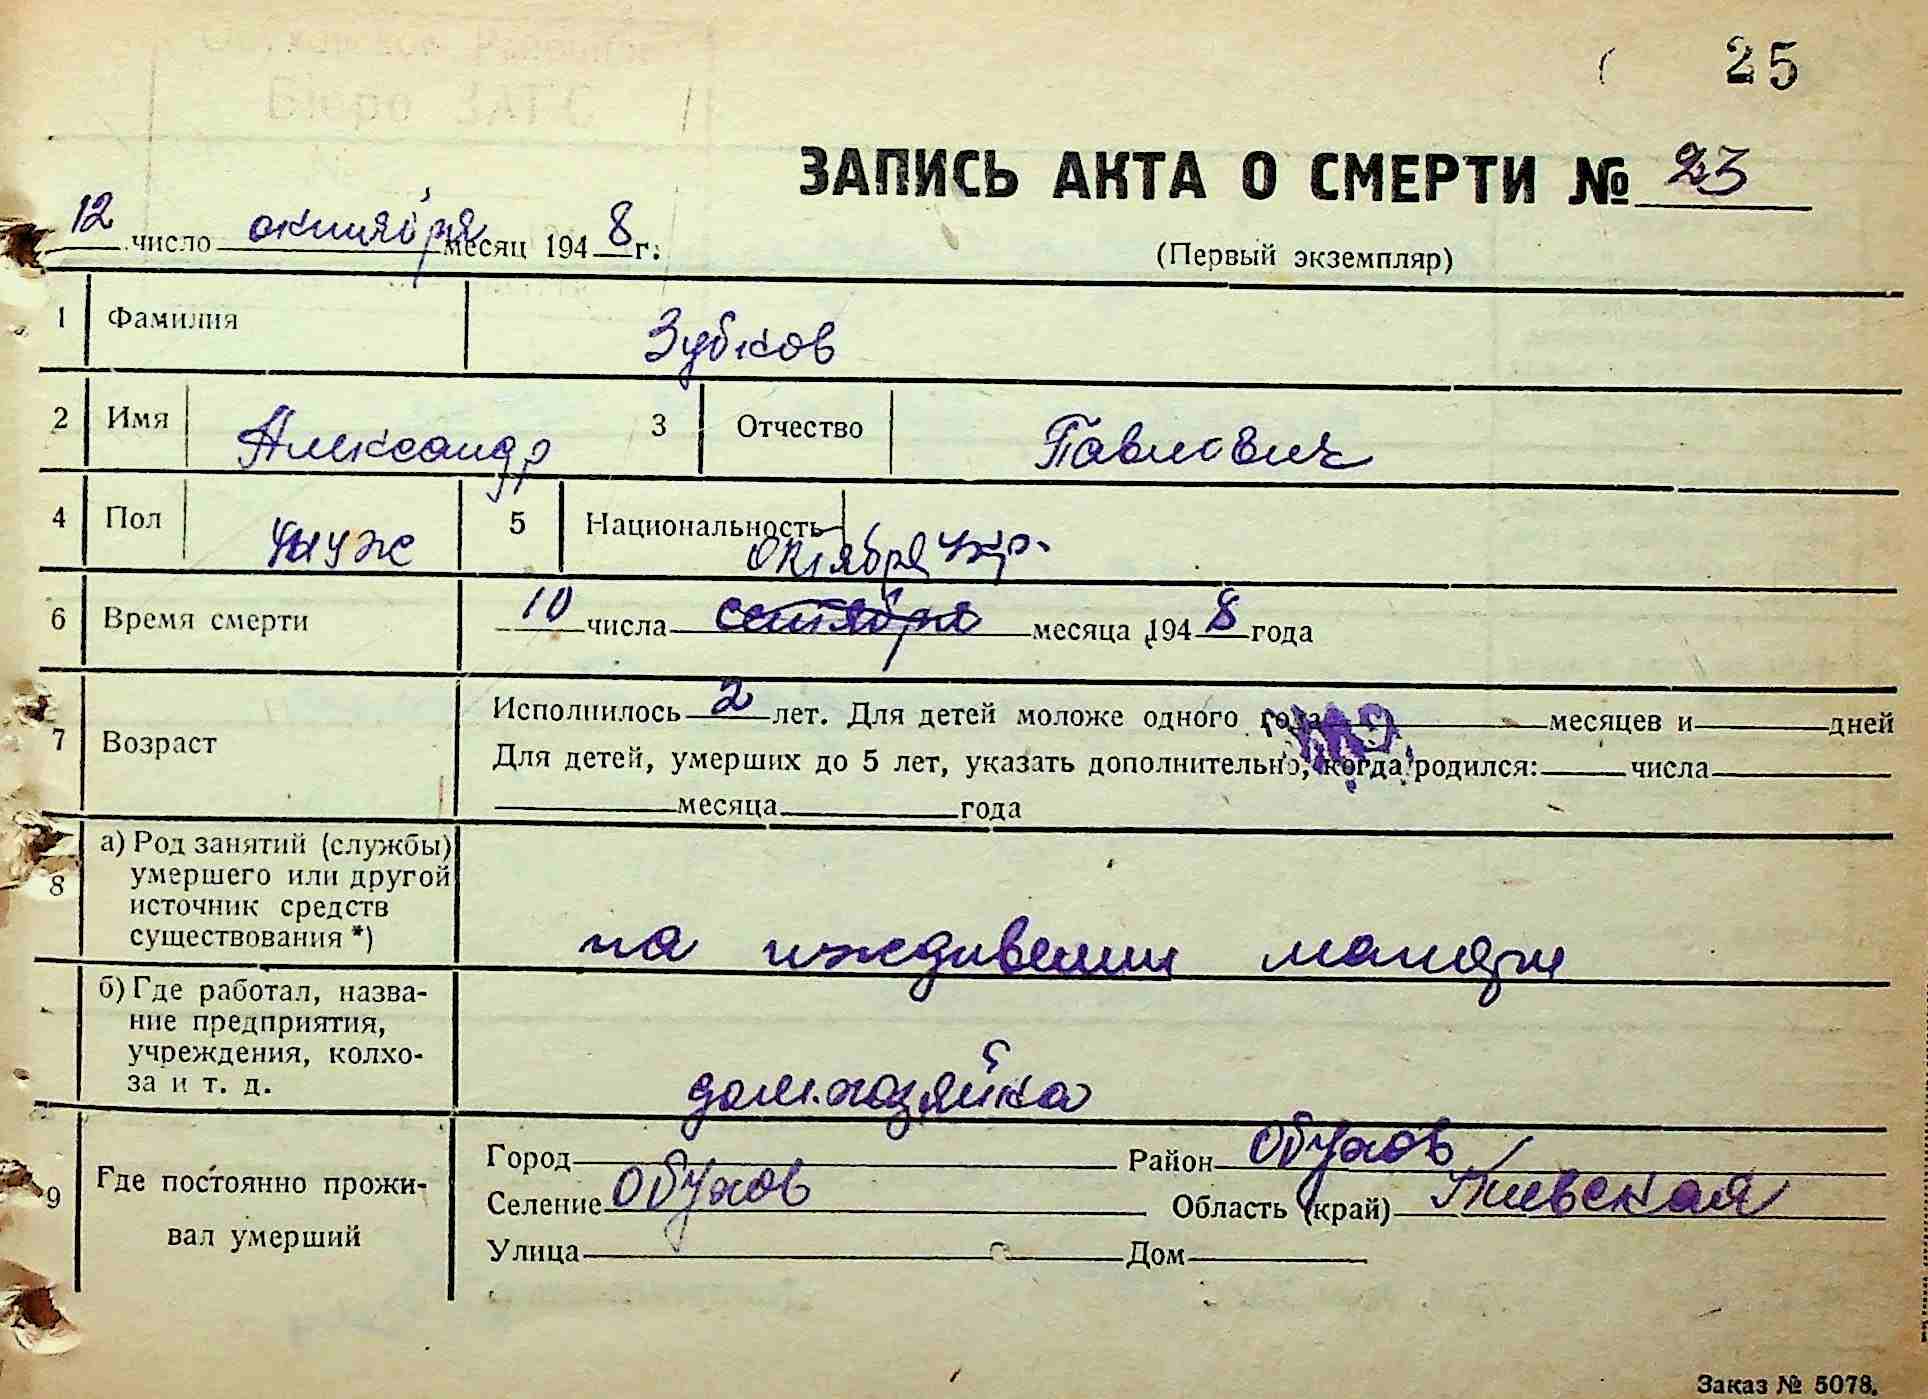 25
Бюро ЗАГС
ЗАПИСЬ АКТА О СМЕРТИ № 23
12 число октября месяц 1948 г.
(Первый экземпляр)
1 Фамилия Зубков
2 Имя Александр 3 Отчество Павлович
4 Пол муж 5 Национальность укр.
октября
6 Время смерти 10 числа сентября месяца 1948 года
7 Возраст Исполнилось 2 лет. Для детей моложе одного года месяцев и дней
Для детей, умерших до 5 лет, указать дополнительно, когда родился: числа
месяца года
8 а) Род занятий (службы)
умершего или другой
источник средств
существования *) на иждивении матери
б) Где работал, назва-
ние предприятия,
учреждения, колхо-
за и т. д. дом.хозяйка
9 Где постоянно прожи-
вал умерший
Город Район Обухов
Селение Обухов Область (край) Киевская
Улица Дом
Заказ № 5078.